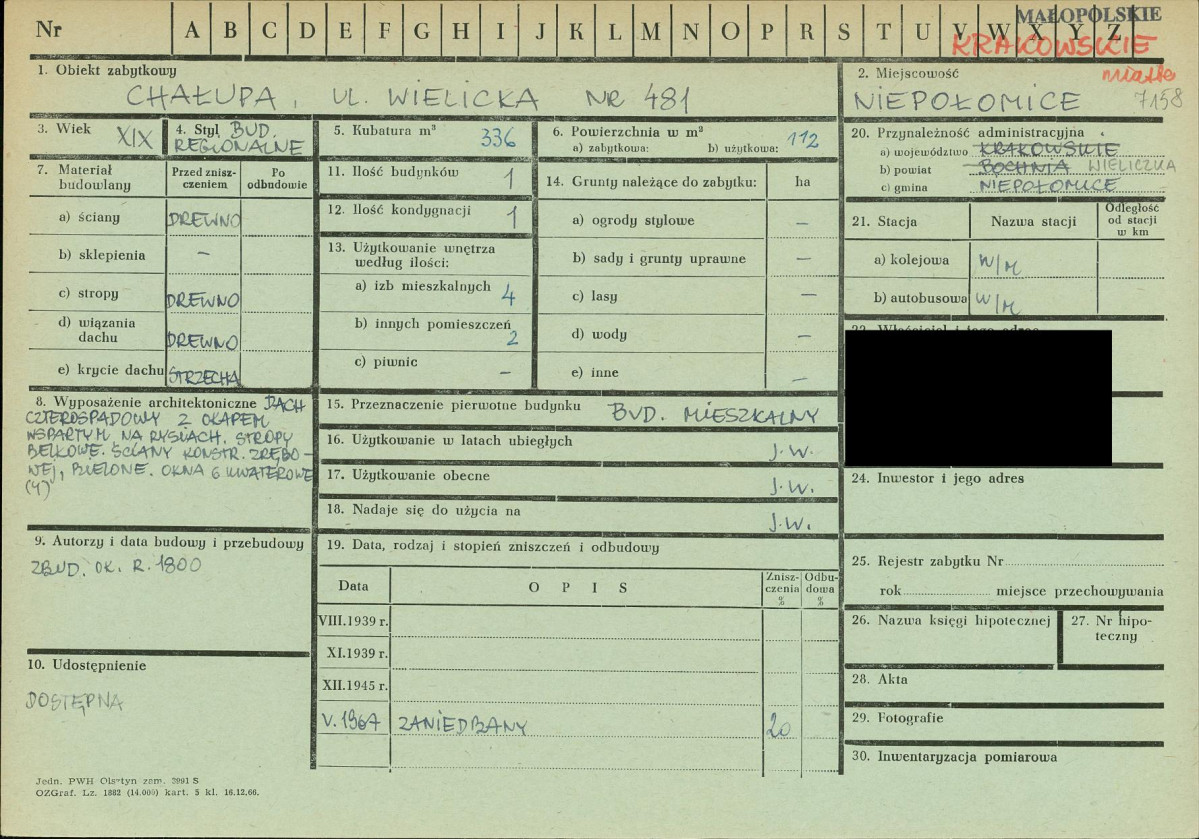 Nr A B C D E F G H I J K L M N O P R S T U V W X Y Z
MAŁOPOLSKIE
KRAKOWSKIE
miasto
1. Obiekt zabytkowy
CHAŁUPA, UL. WIELICKA NR 481
2. Miejscowość
NIEPOŁOMICE 7158
3. Wiek XIX
4. Styl BUD.
REGIONALNE
5. Kubatura m³ 336
6. Powierzchnia w m²
a) zabytkowa: b) użytkowa: 112
7. Materiał
budowlany
Przed znisz-
czeniem
Po
odbudowie
a) ściany DREWNO
b) sklepienia –
c) stropy DREWNO
d) wiązania
dachu DREWNO
e) krycie dachu STRZECHA
8. Wyposażenie architektoniczne DACH
CZTEROSPADOWY Z OKAPEM
WSPARTYM NA RYSIACH. STROPY
BELKOWE. ŚCIANY KONSTR. ZRĘBO-
WEJ, BIELONE. OKNA 6 KWATEROWE
(4)
9. Autorzy i data budowy i przebudowy
ZBUD. OK. R. 1800
10. Udostępnienie
DOSTĘPNA
11. Ilość budynków 1
12. Ilość kondygnacji 1
13. Użytkowanie wnętrza
według ilości:
a) izb mieszkalnych 4
b) innych pomieszczeń 2
c) piwnic –
14. Grunty należące do zabytku: ha
a) ogrody stylowe –
b) sady i grunty uprawne –
c) lasy –
d) wody –
e) inne –
15. Przeznaczenie pierwotne budynku BUD. MIESZKALNY
16. Użytkowanie w latach ubiegłych J.W.
17. Użytkowanie obecne J.W.
18. Nadaje się do użycia na J.W.
19. Data, rodzaj i stopień zniszczeń i odbudowy
Data OPIS Znisz-
czenia
%
Odbu-
dowa
%
VIII.1939 r.
XI.1939 r.
XII.1945 r.
V. 1967 ZANIEDBANY 20
20. Przynależność administracyjna
a) województwo KRAKOWSKIE
b) powiat BOCHNIA WIELICZKA
c) gmina NIEPOŁOMICE
21. Stacja Nazwa stacji Odległość
od stacji
w km
a) kolejowa W/M
b) autobusowa W/M
22. Właściciel i jego adres
24. Inwestor i jego adres
25. Rejestr zabytku Nr
rok miejsce przechowywania
26. Nazwa księgi hipotecznej
27. Nr hipo-
teczny
28. Akta
29. Fotografie
30. Inwentaryzacja pomiarowa
Jedn. PWH Olsztyn zam. 3991 S
OZGraf. Lz. 1882 (14.000) kart. 5 kl. 16.12.66.